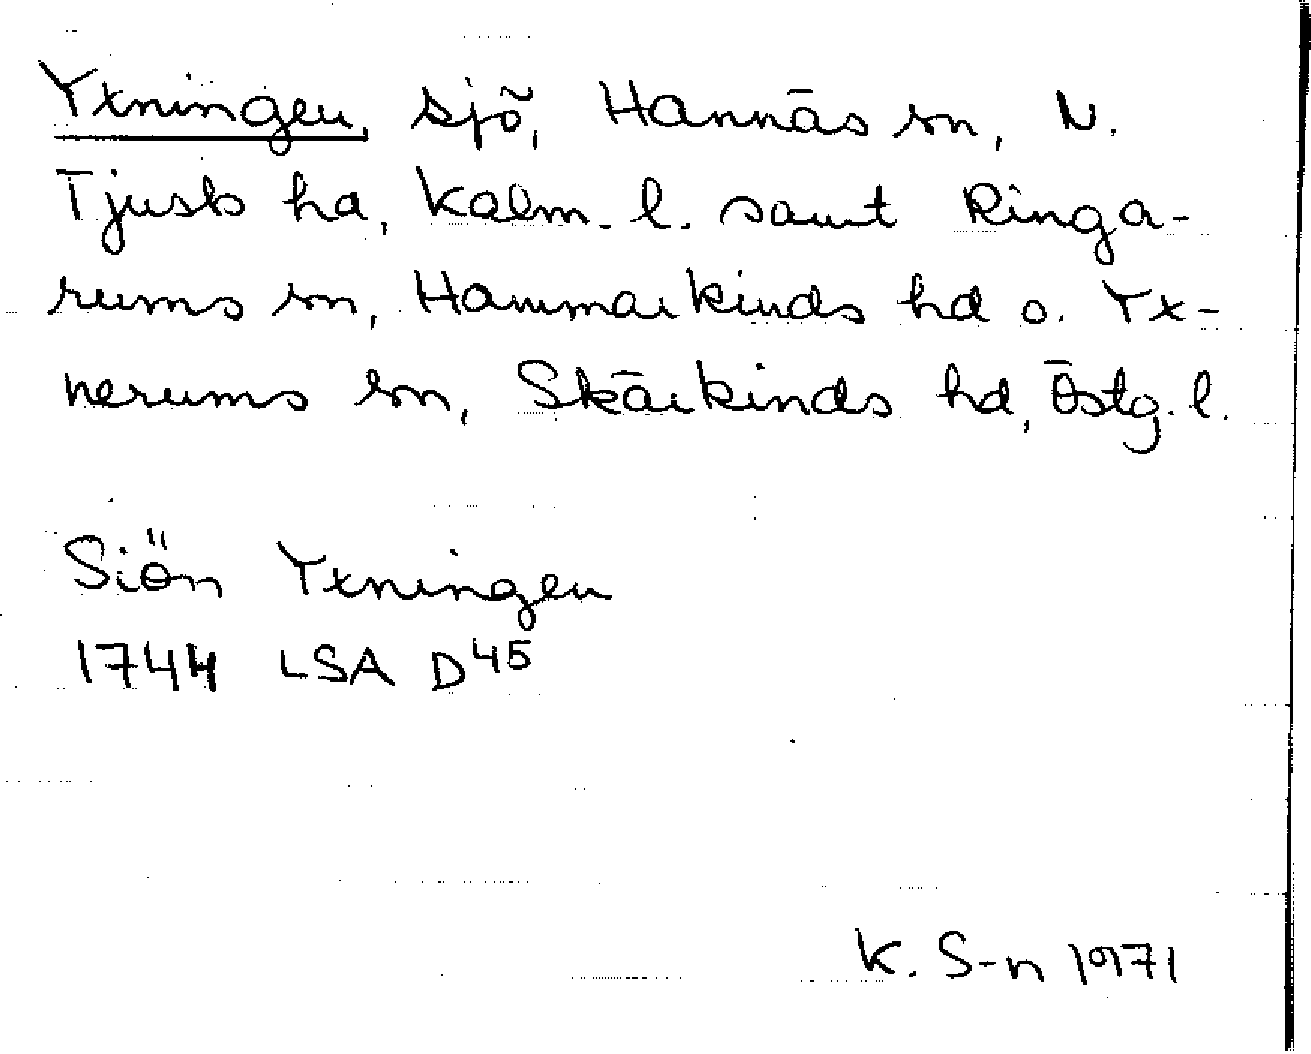 Yxningen, sjö, Hannäs sn, N.
Tjusts hd, Kalm. l. samt Ringa-
rums sn, Hammarkinds hd o. Yx-
nerums sn, Skärkinds hd, Östg. l.
Siön Yxningen
1744 LSA D45
K. S-n 1971